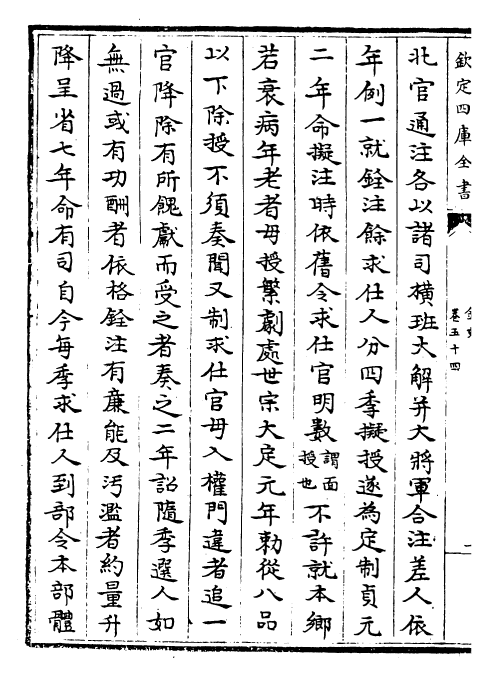 欽定四庫全書
金史
卷五十四
二
北官通注各以諸司橫班大解并大將軍合注差人依
年例一就銓注餘求仕人分四季擬授遂為定制貞元
二年命擬注時依舊令求仕官明數謂面授也不許就本鄉
若衰病年老者毋授繁劇處世宗大定元年勅從八品
以下除授不須奏聞又制求仕官毋入權門違者追一
官降除有所餽獻而受之者奏之二年詔隨季選人如
無過或有功酬者依格銓注有廉能及汚濫者約量升
降呈省七年命有司自今每季求仕人到部令本部體